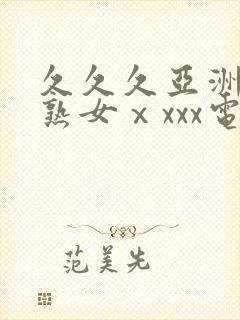 久久久亞洲
熟女ⅹxxx電
范美先